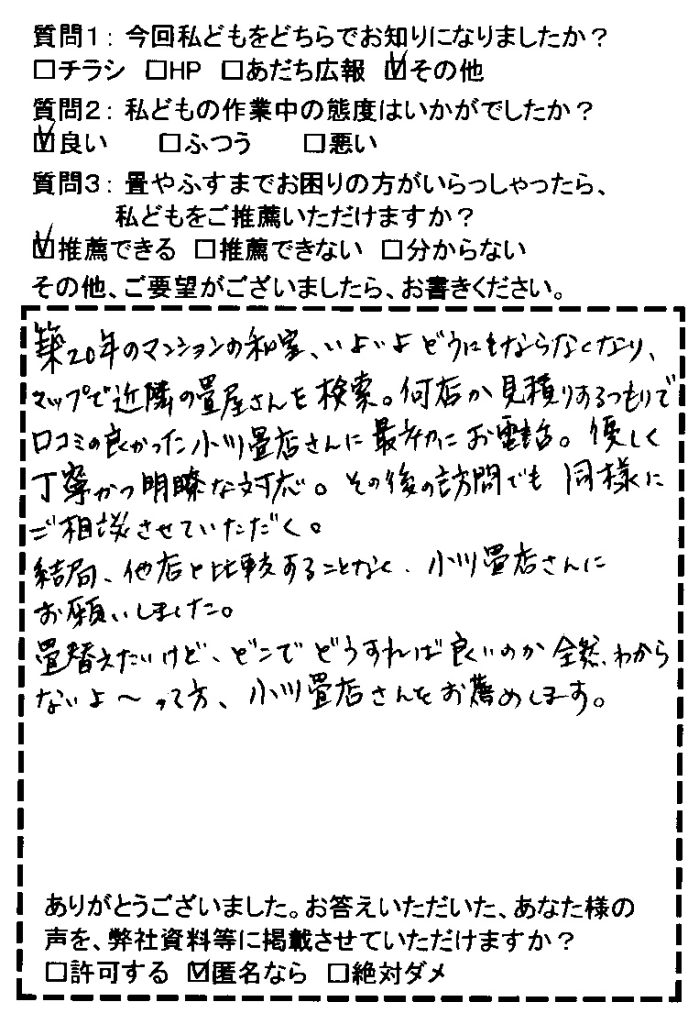 質問1：今回私どもをどちらでお知りになりましたか？
□チラシ □HP □あだち広報 ☑その他
質問2：私どもの作業中の態度はいかがでしたか？
☑良い □ふつう □悪い
質問3：畳やふすまでお困りの方がいらっしゃったら、
私どもをご推薦いただけますか？
☑推薦できる □推薦できない □分からない
その他、ご要望がございましたら、お書きください。
築20年のマンションの和室、いよいよどうにもならなくなり、
マップで近隣の畳屋さんを検索。何店か見積りするつもりで
口コミの良かった小川畳店さんに最初にお電話。優しく
丁寧かつ明瞭な対応。その後の訪問でも同様に
ご相談させていただく。
結局、他店と比較することなく、小川畳店さんに
お願いしました。
畳替えたいけど、どこでどうすれば良いのか全然わから
ないよ～って方、小川畳店さんをお薦めします。
ありがとうございました。お答えいただいた、あなた様の
声を、弊社資料等に掲載させていただけますか？
□許可する ☑匿名なら □絶対ダメ